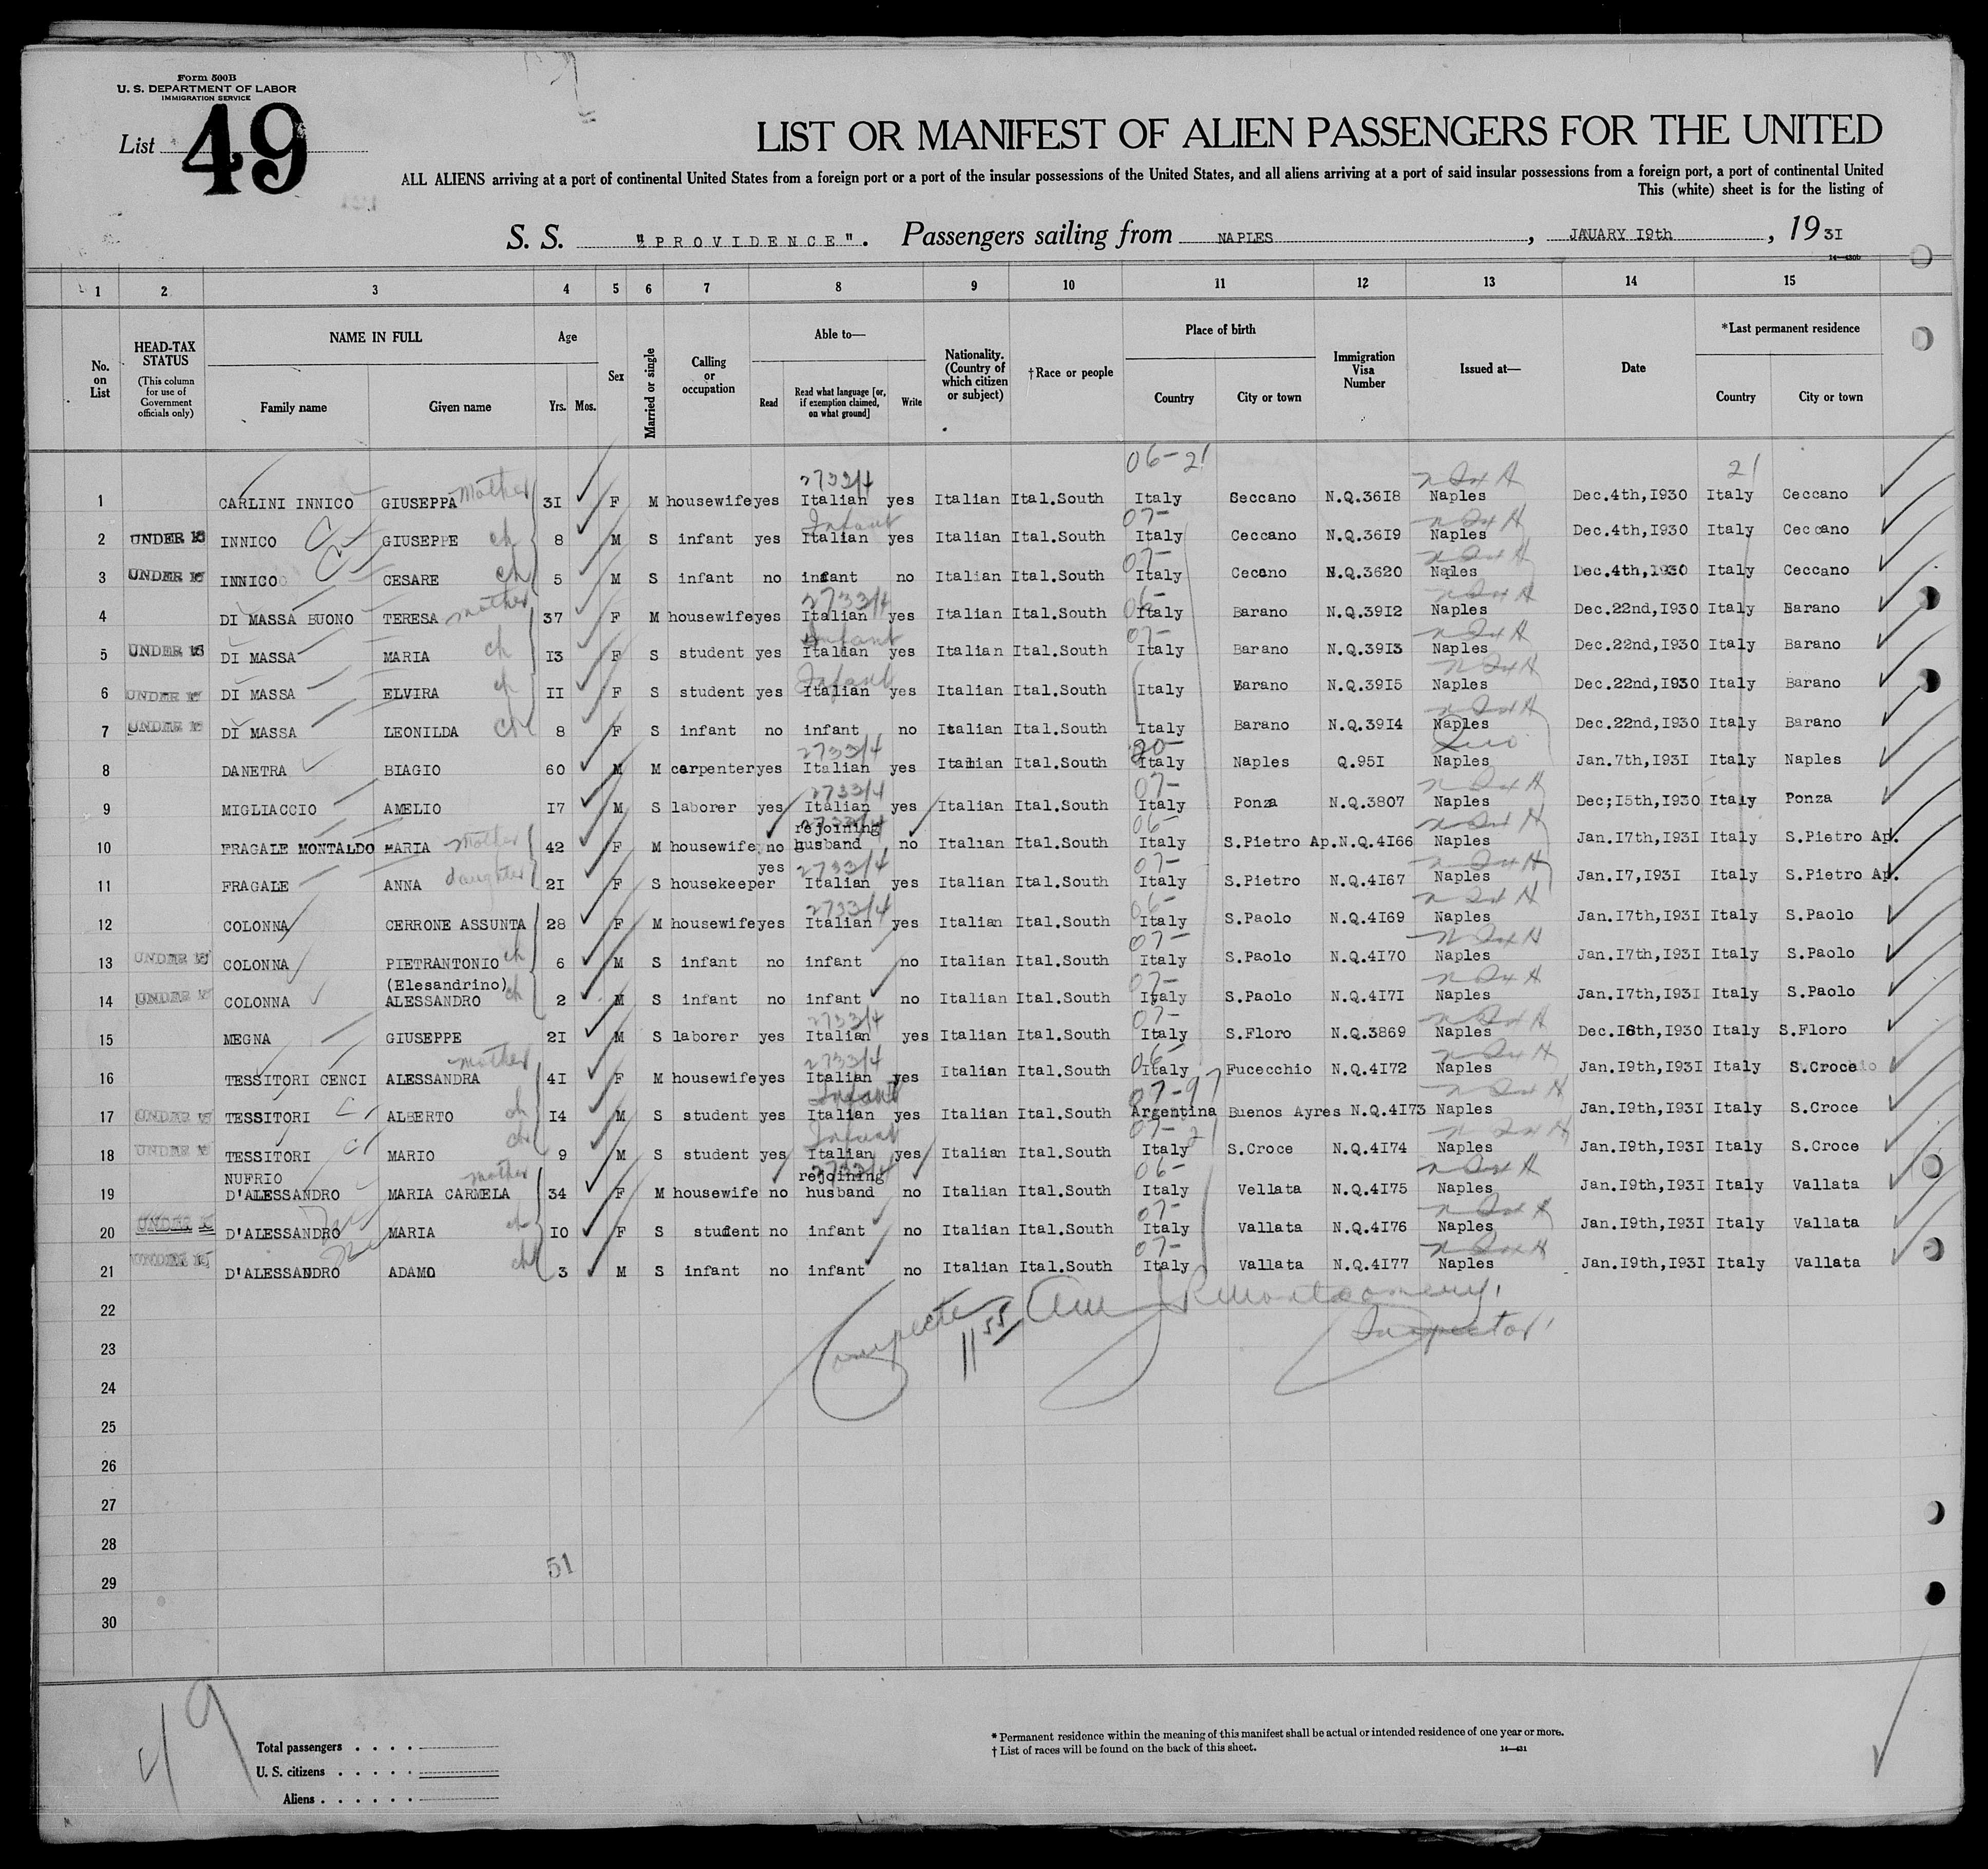 Form 500B
U. S. DEPARTMENT OF LABOR
IMMIGRATION SERVICE
List 49
LIST OR MANIFEST OF ALIEN PASSENGERS FOR THE UNITED
ALL ALIENS arriving at a port of continental United States from a foreign port or a port of the insular possessions of the United States, and all aliens arriving at a port of said insular possessions from a foreign port, a port of continental United
This (white) sheet is for the listing of
S. S. "PROVIDENCE". Passengers sailing from NAPLES, JAUARY I9th, 19 3I
14—430b
1 2 3 4 5 6 7 8 9 10 11 12 13 14 15
No. on List
HEAD-TAX STATUS (This column for use of Government officials only)
NAME IN FULL Family name Given name
Age Yrs. Mos.
Sex
Married or single
Calling or occupation
Able to— Read Read what language [or, if exemption claimed, on what ground] Write
Nationality. (Country of which citizen or subject)
†Race or people
Place of birth Country City or town
Immigration Visa Number
Issued at—
Date
*Last permanent residence Country City or town
06-21 21
2733/4
1 CARLINI INNICO GIUSEPPA Mother 3I F M housewife yes Italian yes Italian Ital.South Italy Seccano N.Q.36I8 Naples Dec.4th,I930 Italy Ceccano
Infant 07-
2 UNDER 16 INNICO GIUSEPPE ch 8 M S infant yes Italian yes Italian Ital.South Italy Ceccano N.Q.36I9 Naples Dec.4th,I930 Italy Ceccano
07-
3 UNDER 16 INNICO CESARE ch 5 M S infant no infant no Italian Ital.South Italy Cecano N.Q.3620 Naples Dec.4th,I930 Italy Ceccano
2733/4
4 DI MASSA BUONO TERESA mother 37 F M housewife yes Italian yes Italian Ital.South Italy Barano N.Q.39I2 Naples Dec.22nd,I930 Italy Barano
Infant 07-
5 UNDER 16 DI MASSA MARIA ch I3 F S student yes Italian yes Italian Ital.South Italy Barano N.Q.39I3 Naples Dec.22nd,I930 Italy Barano
Infant
6 UNDER 16 DI MASSA ELVIRA ch II F S student yes Italian yes Italian Ital.South Italy Barano N.Q.39I5 Naples Dec.22nd,I930 Italy Barano
7 UNDER 16 DI MASSA LEONILDA ch 8 F S infant no infant no Italian Ital.South Italy Barano N.Q.39I4 Naples Dec.22nd,I930 Italy Barano
2733/4
8 DANETRA BIAGIO 60 M M carpenter yes Italian yes Italian Ital.South Italy Naples Q.95I Naples Jan.7th,I93I Italy Naples
2733/4 07-
9 MIGLIACCIO AMELIO I7 M S laborer yes Italian yes Italian Ital.South Italy Ponza N.Q.3807 Naples Dec;I5th,I930 Italy Ponza
2733/4 06-
10 FRAGALE MONTALDO MARIA Mother 42 F M housewife no rejoining husband no Italian Ital.South Italy S.Pietro Ap. N.Q.4I66 Naples Jan.I7th,I93I Italy S.Pietro Ap.
2733/4 07-
11 FRAGALE ANNA daughter 2I F S housekeeper yes Italian yes Italian Ital.South Italy S.Pietro N.Q.4I67 Naples Jan.I7,I93I Italy S.Pietro Ap.
2733/4 06-
12 COLONNA CERRONE ASSUNTA 28 F M housewife yes Italian yes Italian Ital.South Italy S.Paolo N.Q.4I69 Naples Jan.I7th,I93I Italy S.Paolo
07-
13 UNDER 16 COLONNA PIETRANTONIO ch 6 M S infant no infant no Italian Ital.South Italy S.Paolo N.Q.4I70 Naples Jan.I7th,I93I Italy S.Paolo
07-
14 UNDER 16 COLONNA (Elesandrino) ALESSANDRO ch 2 M S infant no infant no Italian Ital.South Italy S.Paolo N.Q.4I7I Naples Jan.I7th,I93I Italy S.Paolo
2733/4 07-
15 MEGNA GIUSEPPE 2I M S laborer yes Italian yes Italian Ital.South Italy S.Floro N.Q.3869 Naples Dec.I6th,I930 Italy S.Floro
2733/4 06-
16 TESSITORI CENCI ALESSANDRA mother 4I F M housewife yes Italian yes Italian Ital.South Italy Fucecchio N.Q.4I72 Naples Jan.I9th,I93I Italy S.Croce
Infant 07-97
17 UNDER 16 TESSITORI ALBERTO ch I4 M S student yes Italian yes Italian Ital.South Argentina Buenos Ayres N.Q.4I73 Naples Jan.I9th,I93I Italy S.Croce
Infant 07-21
18 UNDER 16 TESSITORI MARIO ch 9 M S student yes Italian yes Italian Ital.South Italy S.Croce N.Q.4I74 Naples Jan.I9th,I93I Italy S.Croce
2733/4 06-
19 NUFRIO D'ALESSANDRO MARIA CARMELA mother 34 F M housewife no rejoining husband no Italian Ital.South Italy Vellata N.Q.4I75 Naples Jan.I9th,I93I Italy Vallata
07-
20 UNDER 16 D'ALESSANDRO MARIA ch I0 F S student no infant no Italian Ital.South Italy Vallata N.Q.4I76 Naples Jan.I9th,I93I Italy Vallata
07-
21 UNDER 16 D'ALESSANDRO ADAMO ch 3 M S infant no infant no Italian Ital.South Italy Vallata N.Q.4I77 Naples Jan.I9th,I93I Italy Vallata
22
11 55 am R Montgomery,
23 Inspector
24
25
26
27
28
51
29
30
49
Total passengers
U. S. citizens
Aliens
* Permanent residence within the meaning of this manifest shall be actual or intended residence of one year or more.
† List of races will be found on the back of this sheet.
14—431